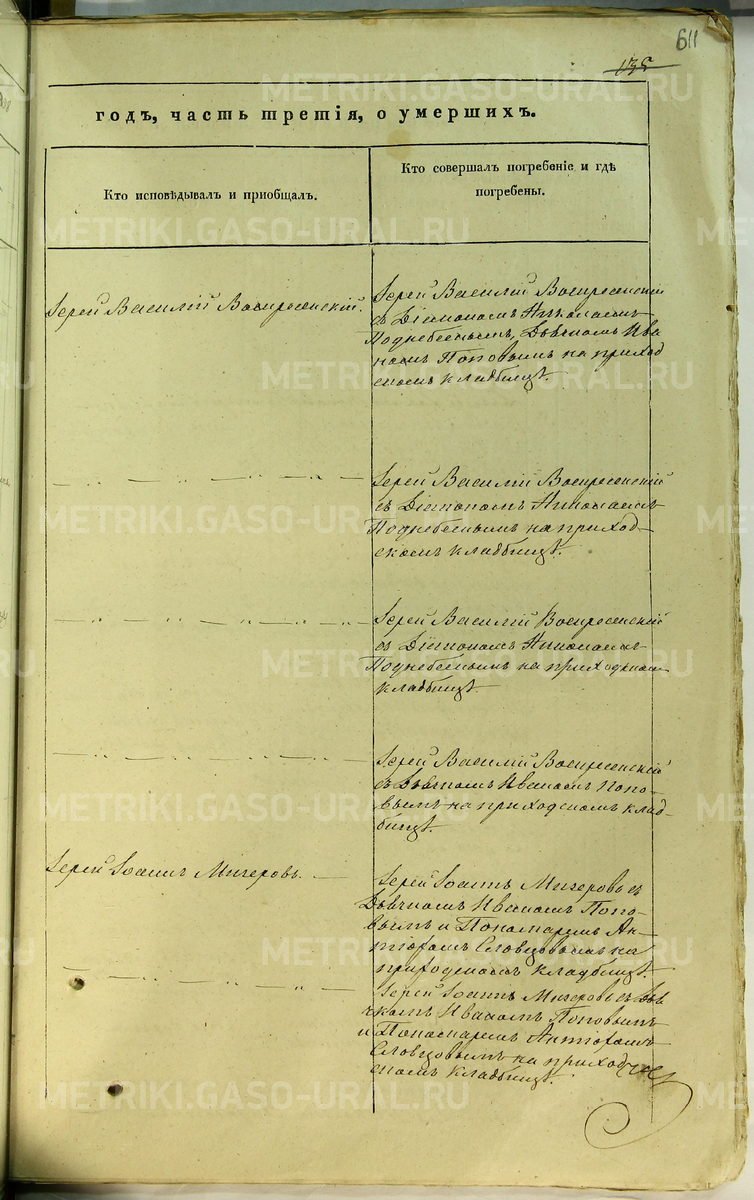 611
135
годъ, часть третія, о умершихъ.
Кто исповѣдывалъ и пріобщалъ.
Кто совершалъ погребеніе и гдѣ
погребены.
Іерей Василій Воскресенскій.
Іерей Василій Воскресенскій
съ Діакономъ Николаемъ
Поднебеснымъ, Дьячкомъ Ива
номъ Поповымъ на приход
скомъ кладбищѣ.
Іерей Василій Воскресенскій
съ Діакономъ Николаемъ
Поднебеснымъ на приход-
скомъ кладбищѣ.
Іерей Василій Воскресенскій
съ Діакономъ Николаемъ
Поднебеснымъ на приходскомъ
кладбищѣ.
Іерей Василій Воскресенскій
съ Дьячкомъ Иваномъ Попо-
вымъ на приходскомъ клад-
бищѣ.
Іерей Іоаннъ Мичеровъ.
Іерей Іоаннъ Мичеровъ съ
Дьячкомъ Иваномъ Попо-
вымъ и Пономаремъ Ан-
тіофомъ Словцовымъ на
приходскомъ кладбищѣ.
Іерей Іоаннъ Мичеровъ съ Дья
чкомъ Иваномъ Поповымъ
и Пономаремъ Антіофомъ
Словцовымъ на приход
скомъ кладбищѣ.
METRIKI.GASO-URAL.RU